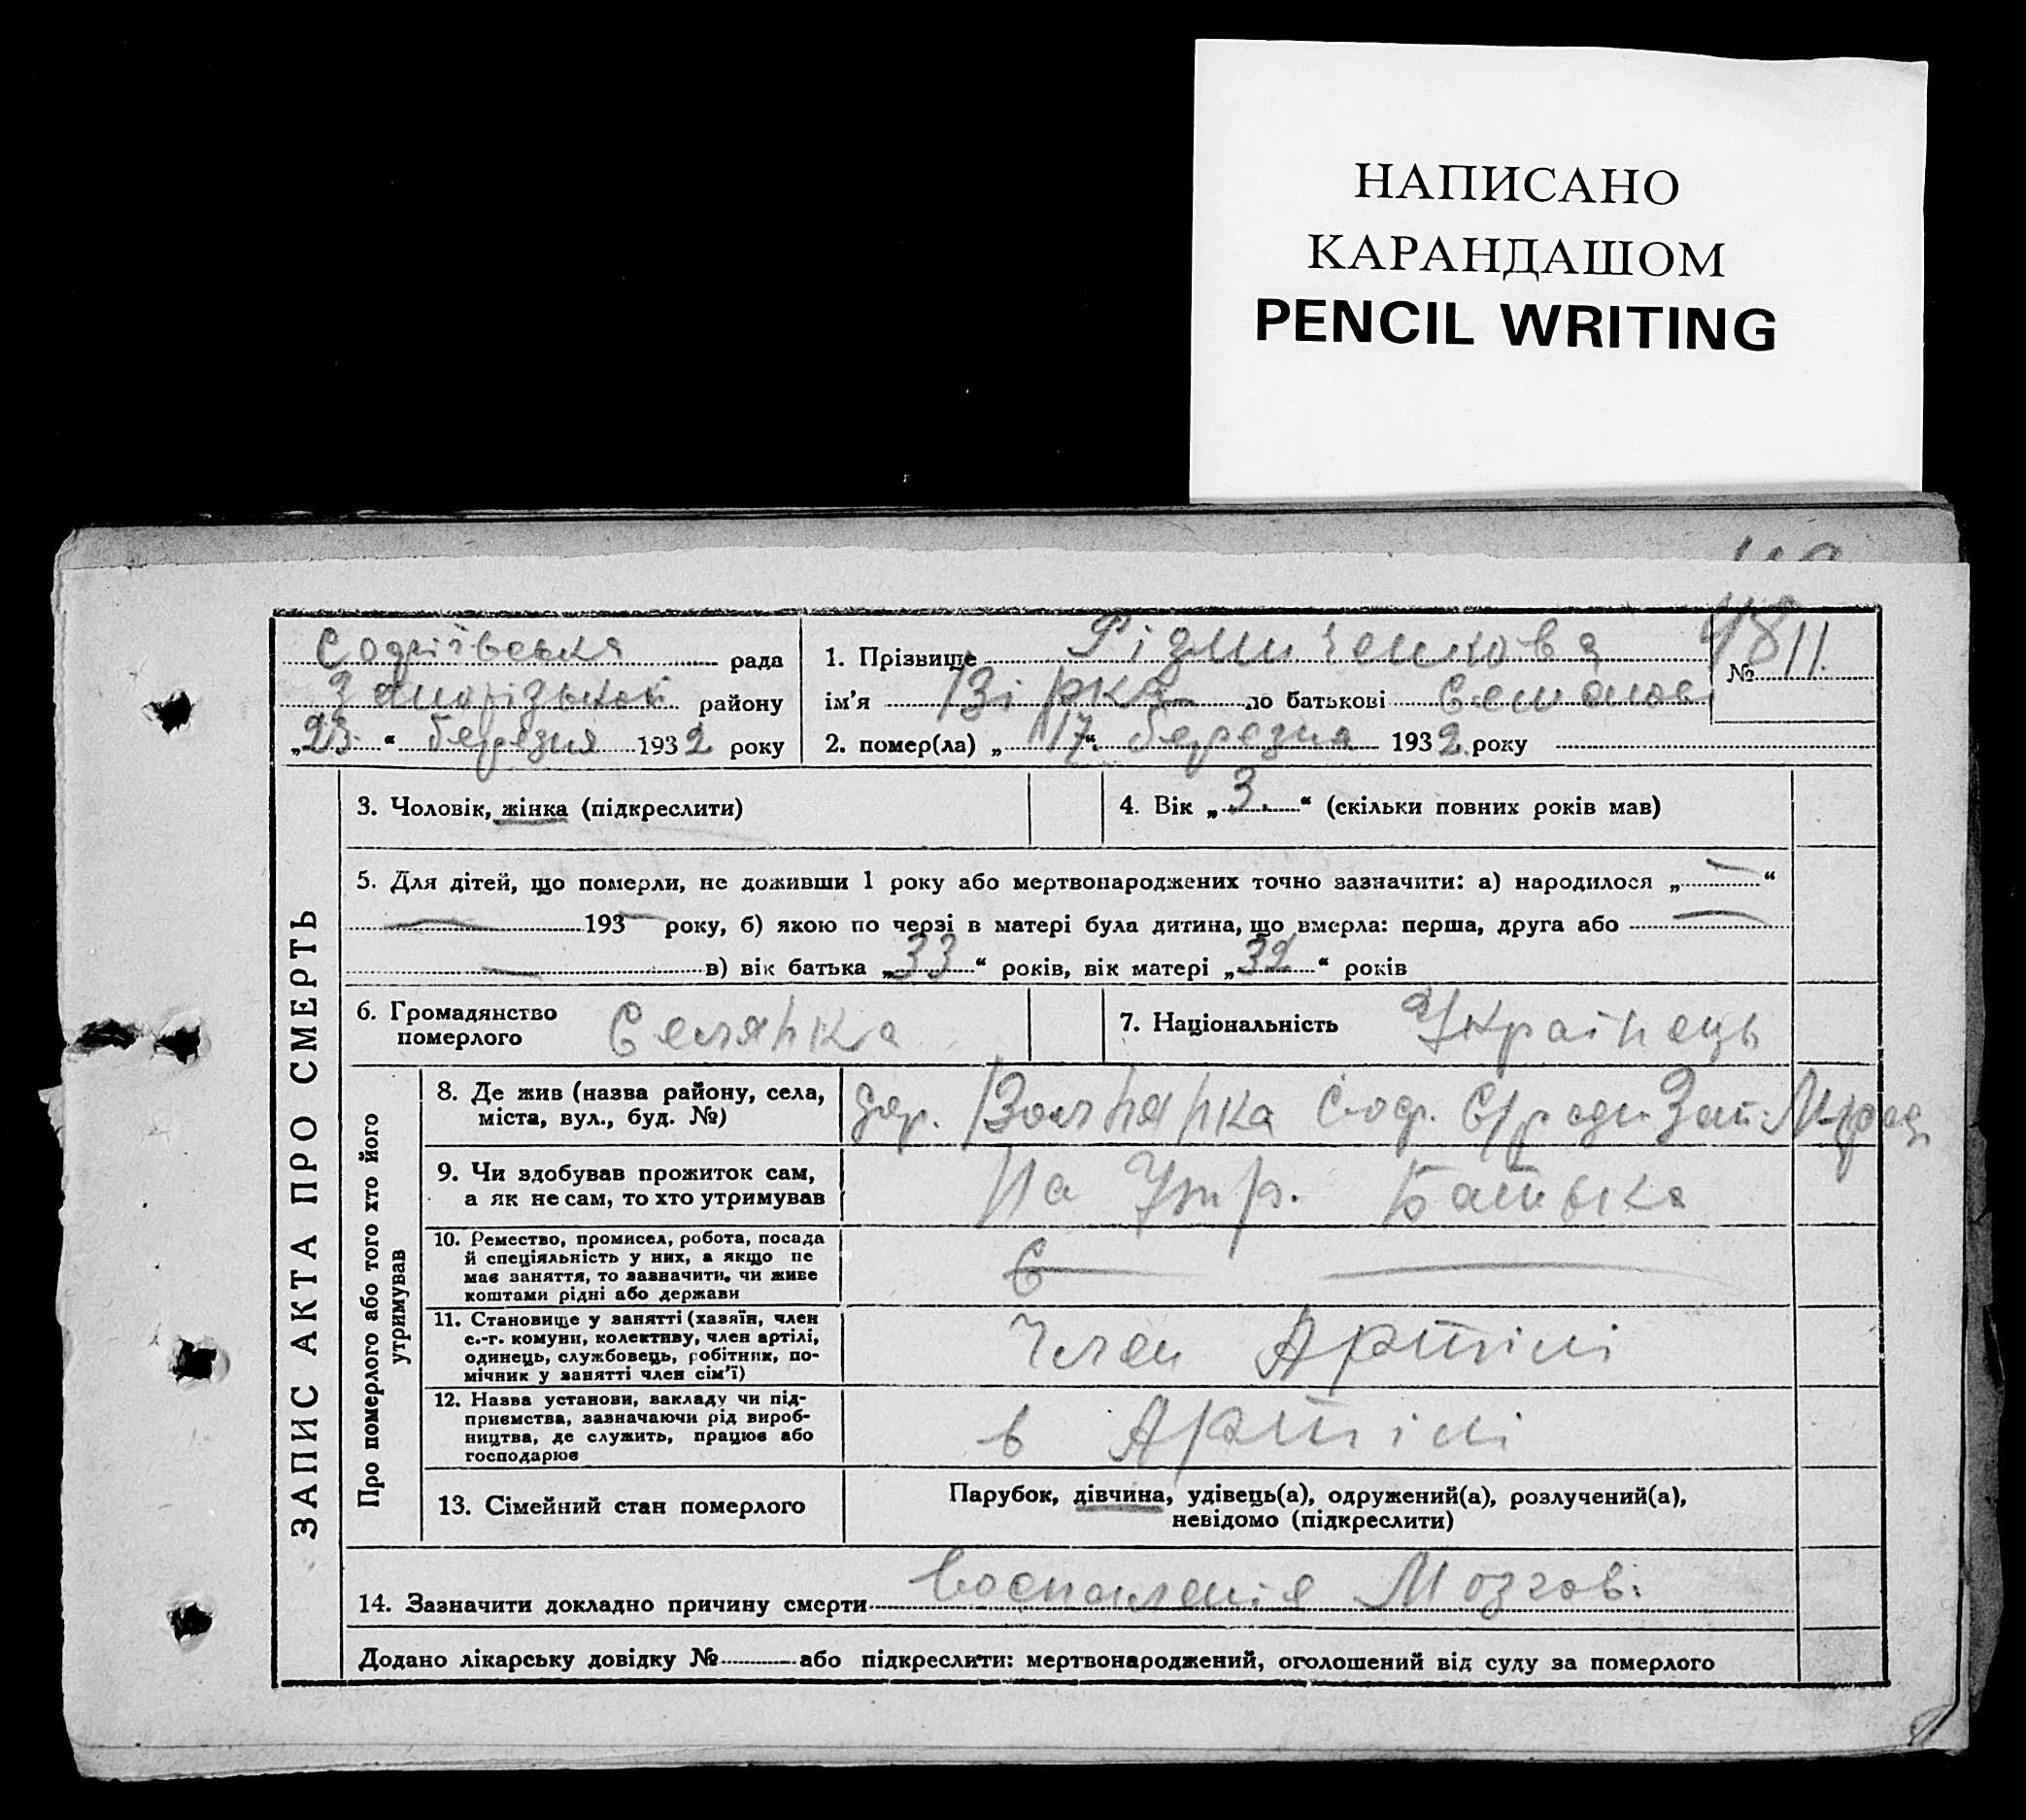 НАПИСАНО
КАРАНДАШОМ
PENCIL WRITING
рада
Запорізькой району
„23.“ березня 1932 року
1. Прізвище Різниченкова
ім’я Вірка по батькові Семенов
2. помер(ла) „17“ березня 1932. року
№ 11.
48
ЗАПИС АКТА ПРО СМЕРТЬ
3. Чоловік, жінка (підкреслити)
4. Вік „3.“ (скільки повних років мав)
5. Для дітей, що померли, не доживши 1 року або мертвонароджених точно зазначити: а) народилося „—“
— 193— року, б) якою по черзі в матері була дитина, що вмерла: перша, друга або —
— в) вік батька „33“ років, вік матері „32“ років
6. Громадянство
померлого
Селянка
7. Національність Українець
Про померлого або того хто його
утримував
8. Де жив (назва району, села,
міста, вул., буд. №)
9. Чи здобував прожиток сам,
а як не сам, то хто утримував
На Утр. Батька
10. Ремество, промисел, робота, посада
й спеціяльність у них, а якщо не
має заняття, то зазначити, чи живе
коштами рідні або держави
11. Становище у занятті (хазяїн, член
с.-г. комуни, колективу, член артілі,
одинець, службовець, робітник, по-
мічник у занятті член сім’ї)
Член Артілі
12. Назва установи, закладу чи під-
приємства, зазначаючи рід вироб-
ництва, де служить, працює або
господарює
в Артілі
13. Сімейний стан померлого
Парубок, дівчина, удівець(а), одружений(а), розлучений(а),
невідомо (підкреслити)
14. Зазначити докладно причину смерти Воспаленія Мозгов:
Додано лікарську довідку № або підкреслити: мертвонароджений, оголошений від суду за померлого